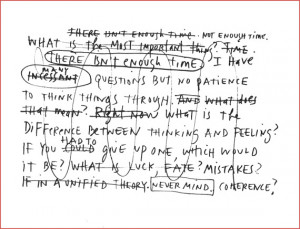 THERE ISN'T ENOUGH TIME. NOT ENOUGH TIME.
WHAT IS the MOST IMPORTANT thing? TIME.
THERE ISN'T ENOUGH TIME. I HAVE
MANY
INCESSANT QUESTIONS BUT NO PATIENCE
TO THINK THINGS THROUGH. AND WHAT DOES
THAT mean? RIGHT NOW WHAT IS the
DIFFERENCE BETWEEN THINKING AND FEELING?
HAD TO
IF YOU COULD GIVE UP ONE, WHICH WOULD
IT BE? WHAT IS LUCK, FATE? MISTAKES?
IF IN A UNIFIED THEORY. NEVER MIND. COHERENCE?